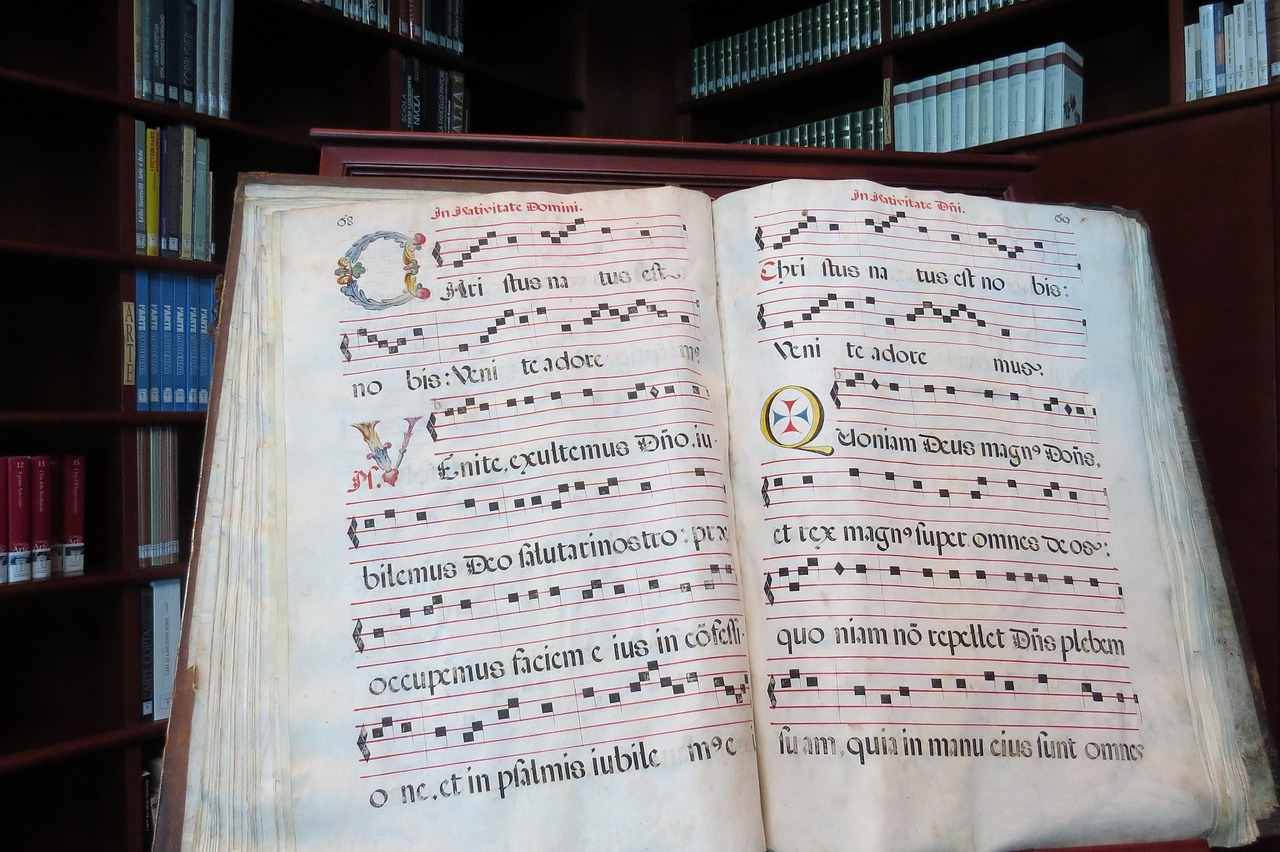 68
In Nativitate Domini.
CHri stus na tus est
no bis: Veni te adore m9
Ps. VEnite, exultemus Dño, iu-
bilemus Deo salutarinostro: præ
occupemus faciem e ius in cõfessi-
o ne, et in psalmis iubile m9 e
69
In Nativitate Dñi.
Chri stus na tus est no bis:
Veni te adore mus.
QUoniam Deus magn9 Doñs,
et rex magn9 super omnes deos:
quo niam nõ repellet Dñs plebem
suam, quia in manu eius sunt omnes
ARTE
L'ARTE
L'ARTE
L'ARTE
L'ARTE
L'ARTE